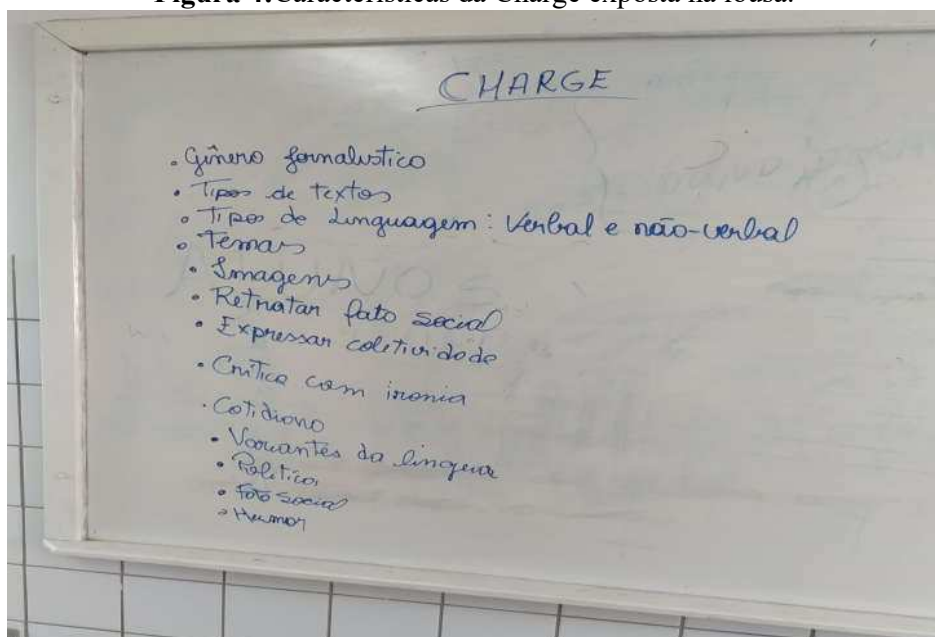 Figura 4: Características da Charge exposta na lousa.
CHARGE
• Gênero jornalístico
• Tipos de textos
• Tipos de Linguagem: Verbal e não-verbal
• Temas
• Imagens
• Retratar fato social
• Expressar coletividade
• Crítica com ironia
• Cotidiano
• Variantes da língua
• Política
• Fato social
• Humor